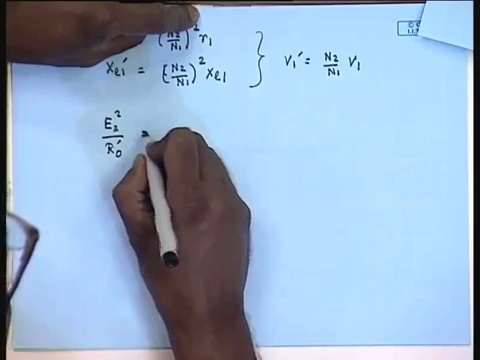 (N2/N1)² r1
xe1′ = (N2/N1)² xe1 } V1′ = N2/N1 V1
E2²/R0′ =